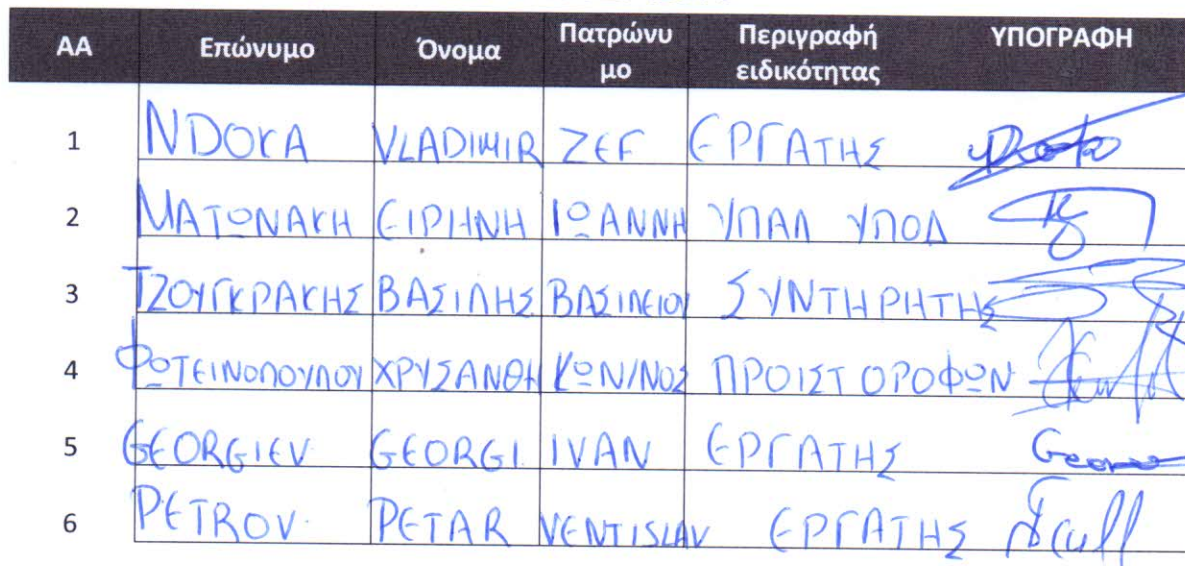 ΑΑ Επώνυμο Όνομα Πατρώνυμο Περιγραφή ειδικότητας ΥΠΟΓΡΑΦΗ
1 NDOKA VLADIMIR ZEF ΕΡΓΑΤΗΣ
2 ΜΑΤΩΝΑΚΗ ΕΙΡΗΝΗ ΙΩΑΝΝΗ ΥΠΑΛ ΥΠΟΔ
3 ΤΖΟΥΓΚΡΑΚΗΣ ΒΑΣΙΛΗΣ ΒΑΣΙΛΕΙΟΥ ΣΥΝΤΗΡΗΤΗΣ
4 ΦΩΤΕΙΝΟΠΟΥΛΟΥ ΧΡΥΣΑΝΘΗ ΚΩΝ/ΝΟΣ ΠΡΟΙΣΤ ΟΡΟΦΩΝ
5 GEORGIEV GEORGI IVAN ΕΡΓΑΤΗΣ
6 PETROV PETAR VENTISLAV ΕΡΓΑΤΗΣ